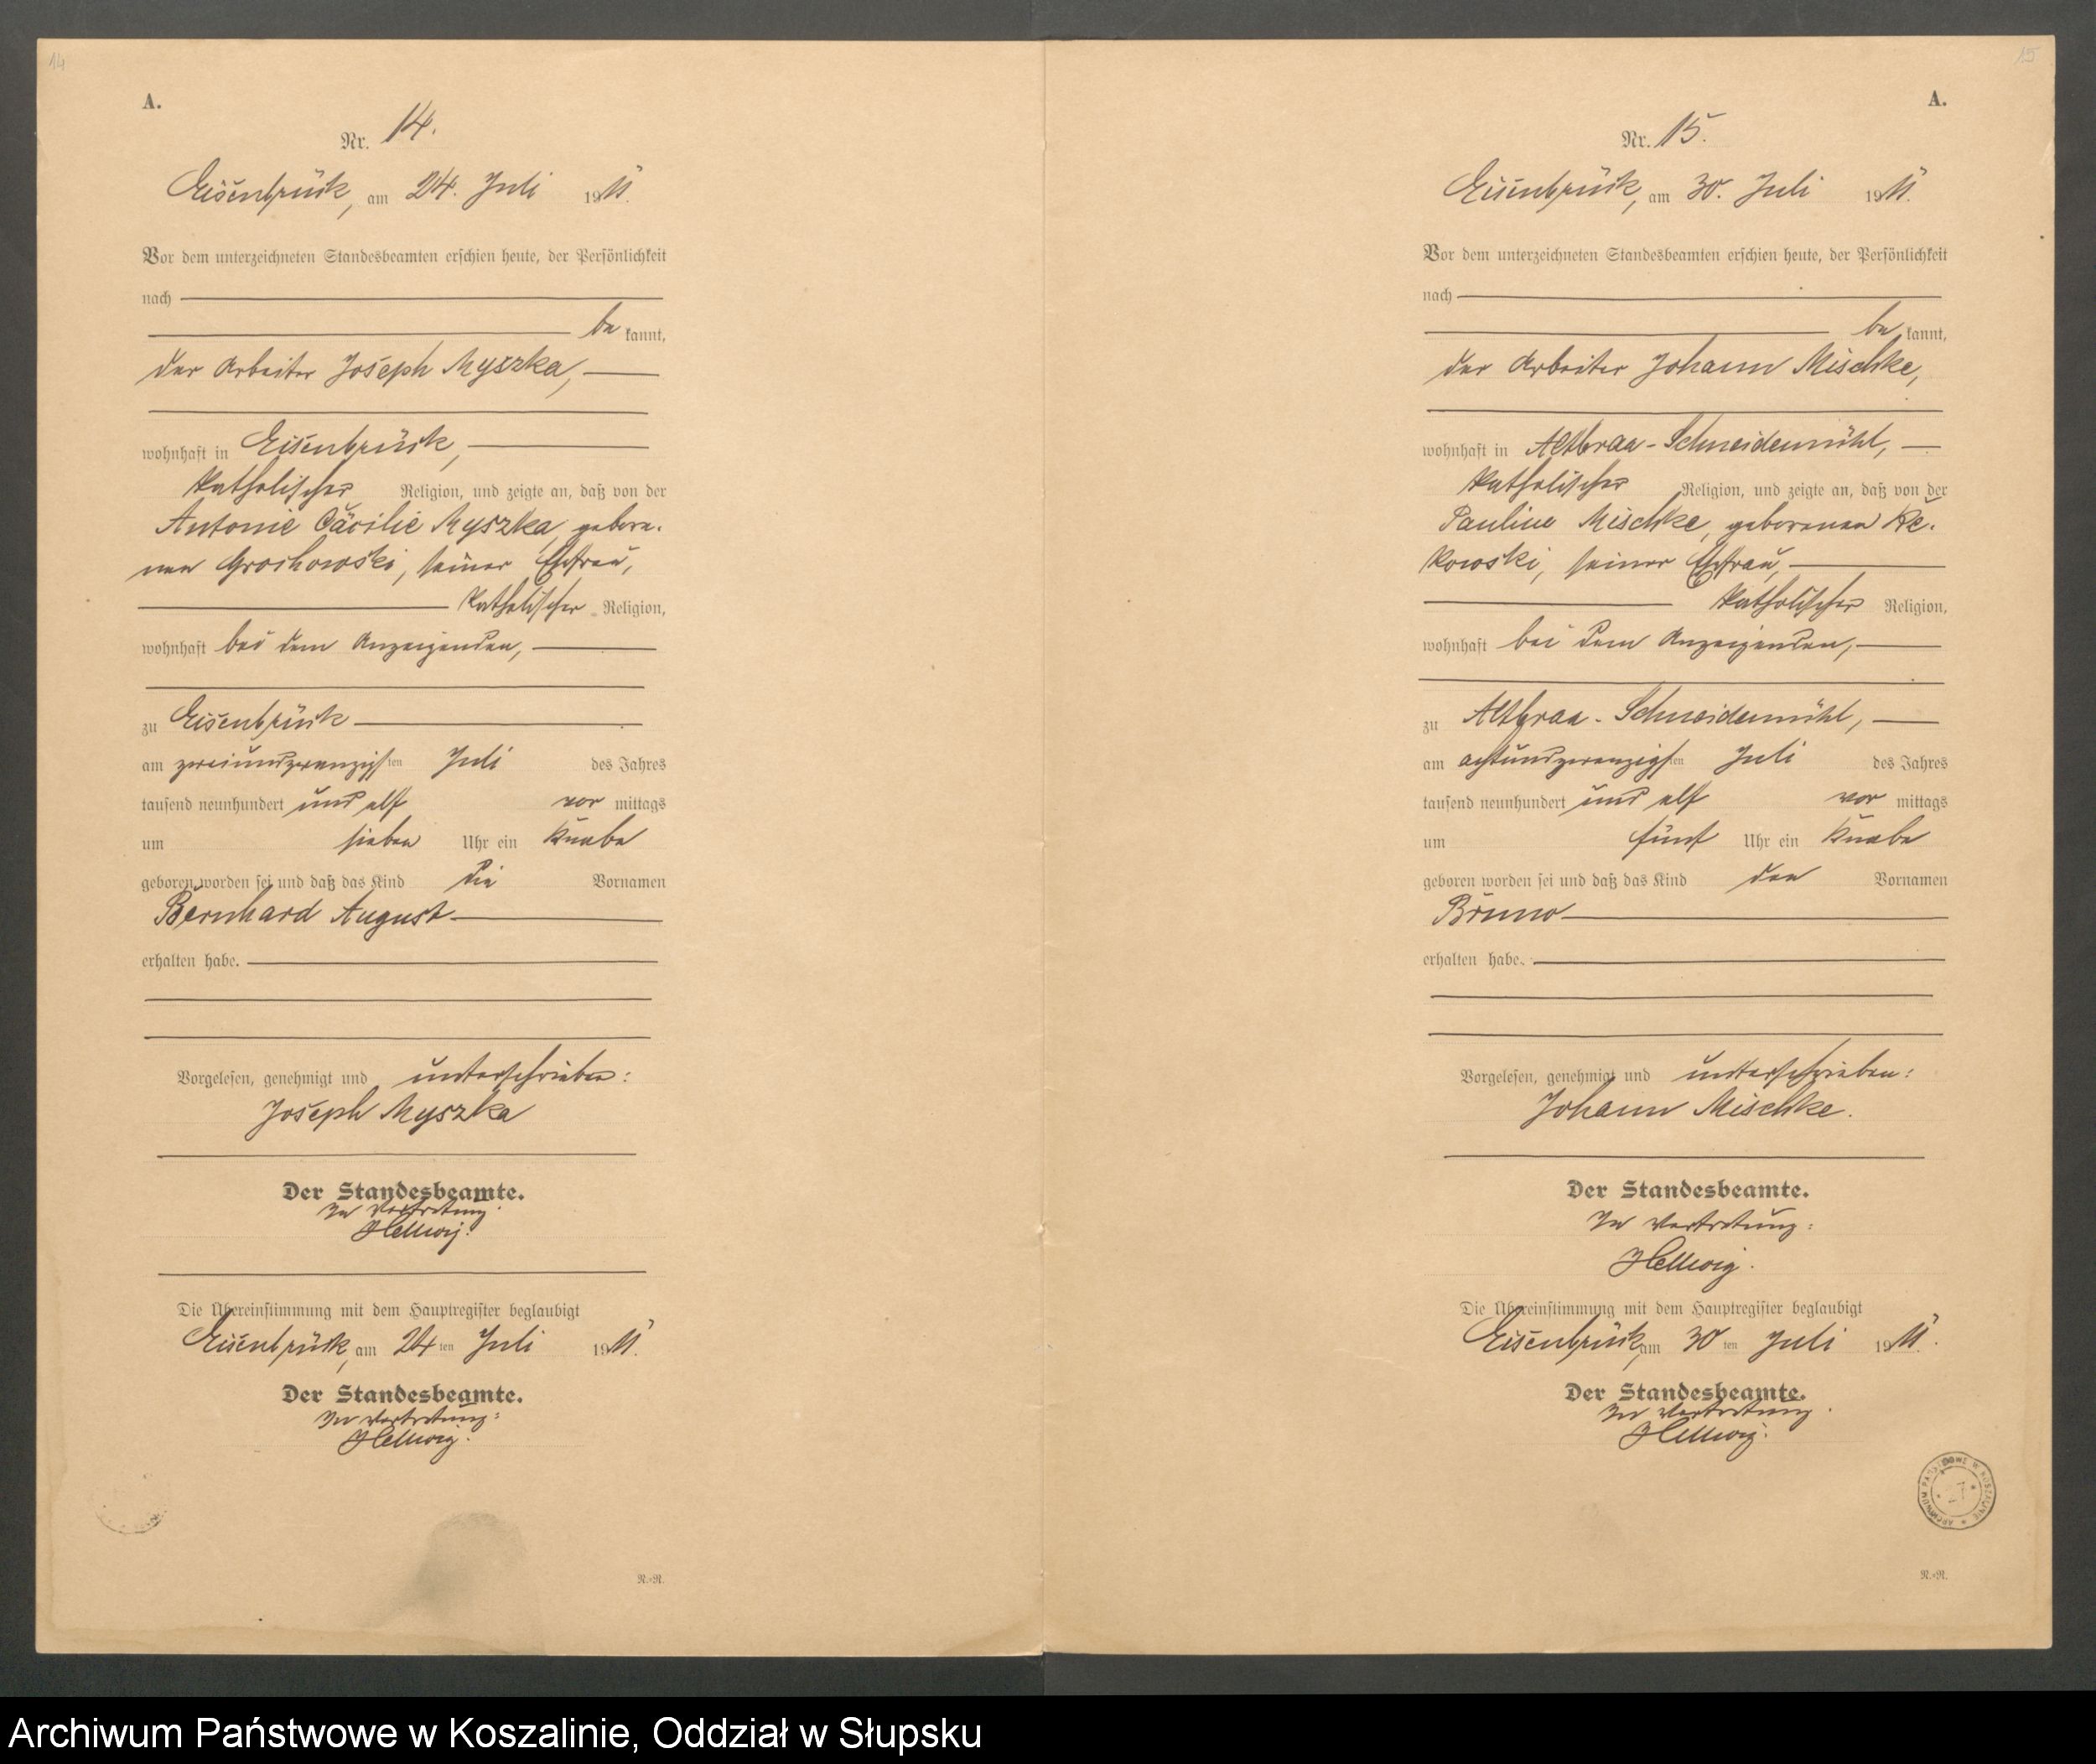 14
A.
Nr. 14.
Eisenbrück, am 24. Juli 1911.
Vor dem unterzeichneten Standesbeamten erschien heute, der Persönlichkeit
nach
be kannt,
der Arbeiter Joseph Myszka,
wohnhaft in Eisenbrück,
katholischer Religion, und zeigte an, daß von der
Antonie Cäcilie Myszka, gebore-
nen Grochowski, seiner Ehefrau,
katholischer Religion,
wohnhaft bei dem Anzeigenden,
zu Eisenbrück
am zweiundzwanzigsten Juli des Jahres
tausend neunhundert und elf vor mittags
um sieben Uhr ein Knabe
geboren worden sei und daß das Kind die Vornamen
Bernhard August
erhalten habe.
Vorgelesen, genehmigt und unterschrieben:
Joseph Myszka
Der Standesbeamte.
In Vertretung:
Hellwig.
Die Übereinstimmung mit dem Hauptregister beglaubigt
Eisenbrück, am 24ten Juli 1911.
Der Standesbeamte.
In Vertretung:
Hellwig.
R.-R.
15
A.
Nr. 15.
Eisenbrück, am 30. Juli 1911.
Vor dem unterzeichneten Standesbeamten erschien heute, der Persönlichkeit
nach
be kannt,
der Arbeiter Johann Mischke,
wohnhaft in Altbraa-Schneidemühl,
katholischer Religion, und zeigte an, daß von der
Pauline Mischke, geborenen
kowski, seiner Ehefrau,
katholischer Religion,
wohnhaft bei dem Anzeigenden,
zu Altbraa-Schneidemühl,
am achtundzwanzigsten Juli des Jahres
tausend neunhundert und elf vor mittags
um fünf Uhr ein Knabe
geboren worden sei und daß das Kind den Vornamen
Bruno
erhalten habe.
Vorgelesen, genehmigt und unterschrieben:
Johann Mischke.
Der Standesbeamte.
In Vertretung:
Hellwig.
Die Übereinstimmung mit dem Hauptregister beglaubigt
Eisenbrück, am 30ten Juli 1911.
Der Standesbeamte.
In Vertretung.
Hellwig.
ARCHIWUM PAŃSTWOWE W KOSZALINIE
27
R.-R.
Archiwum Państwowe w Koszalinie, Oddział w Słupsku